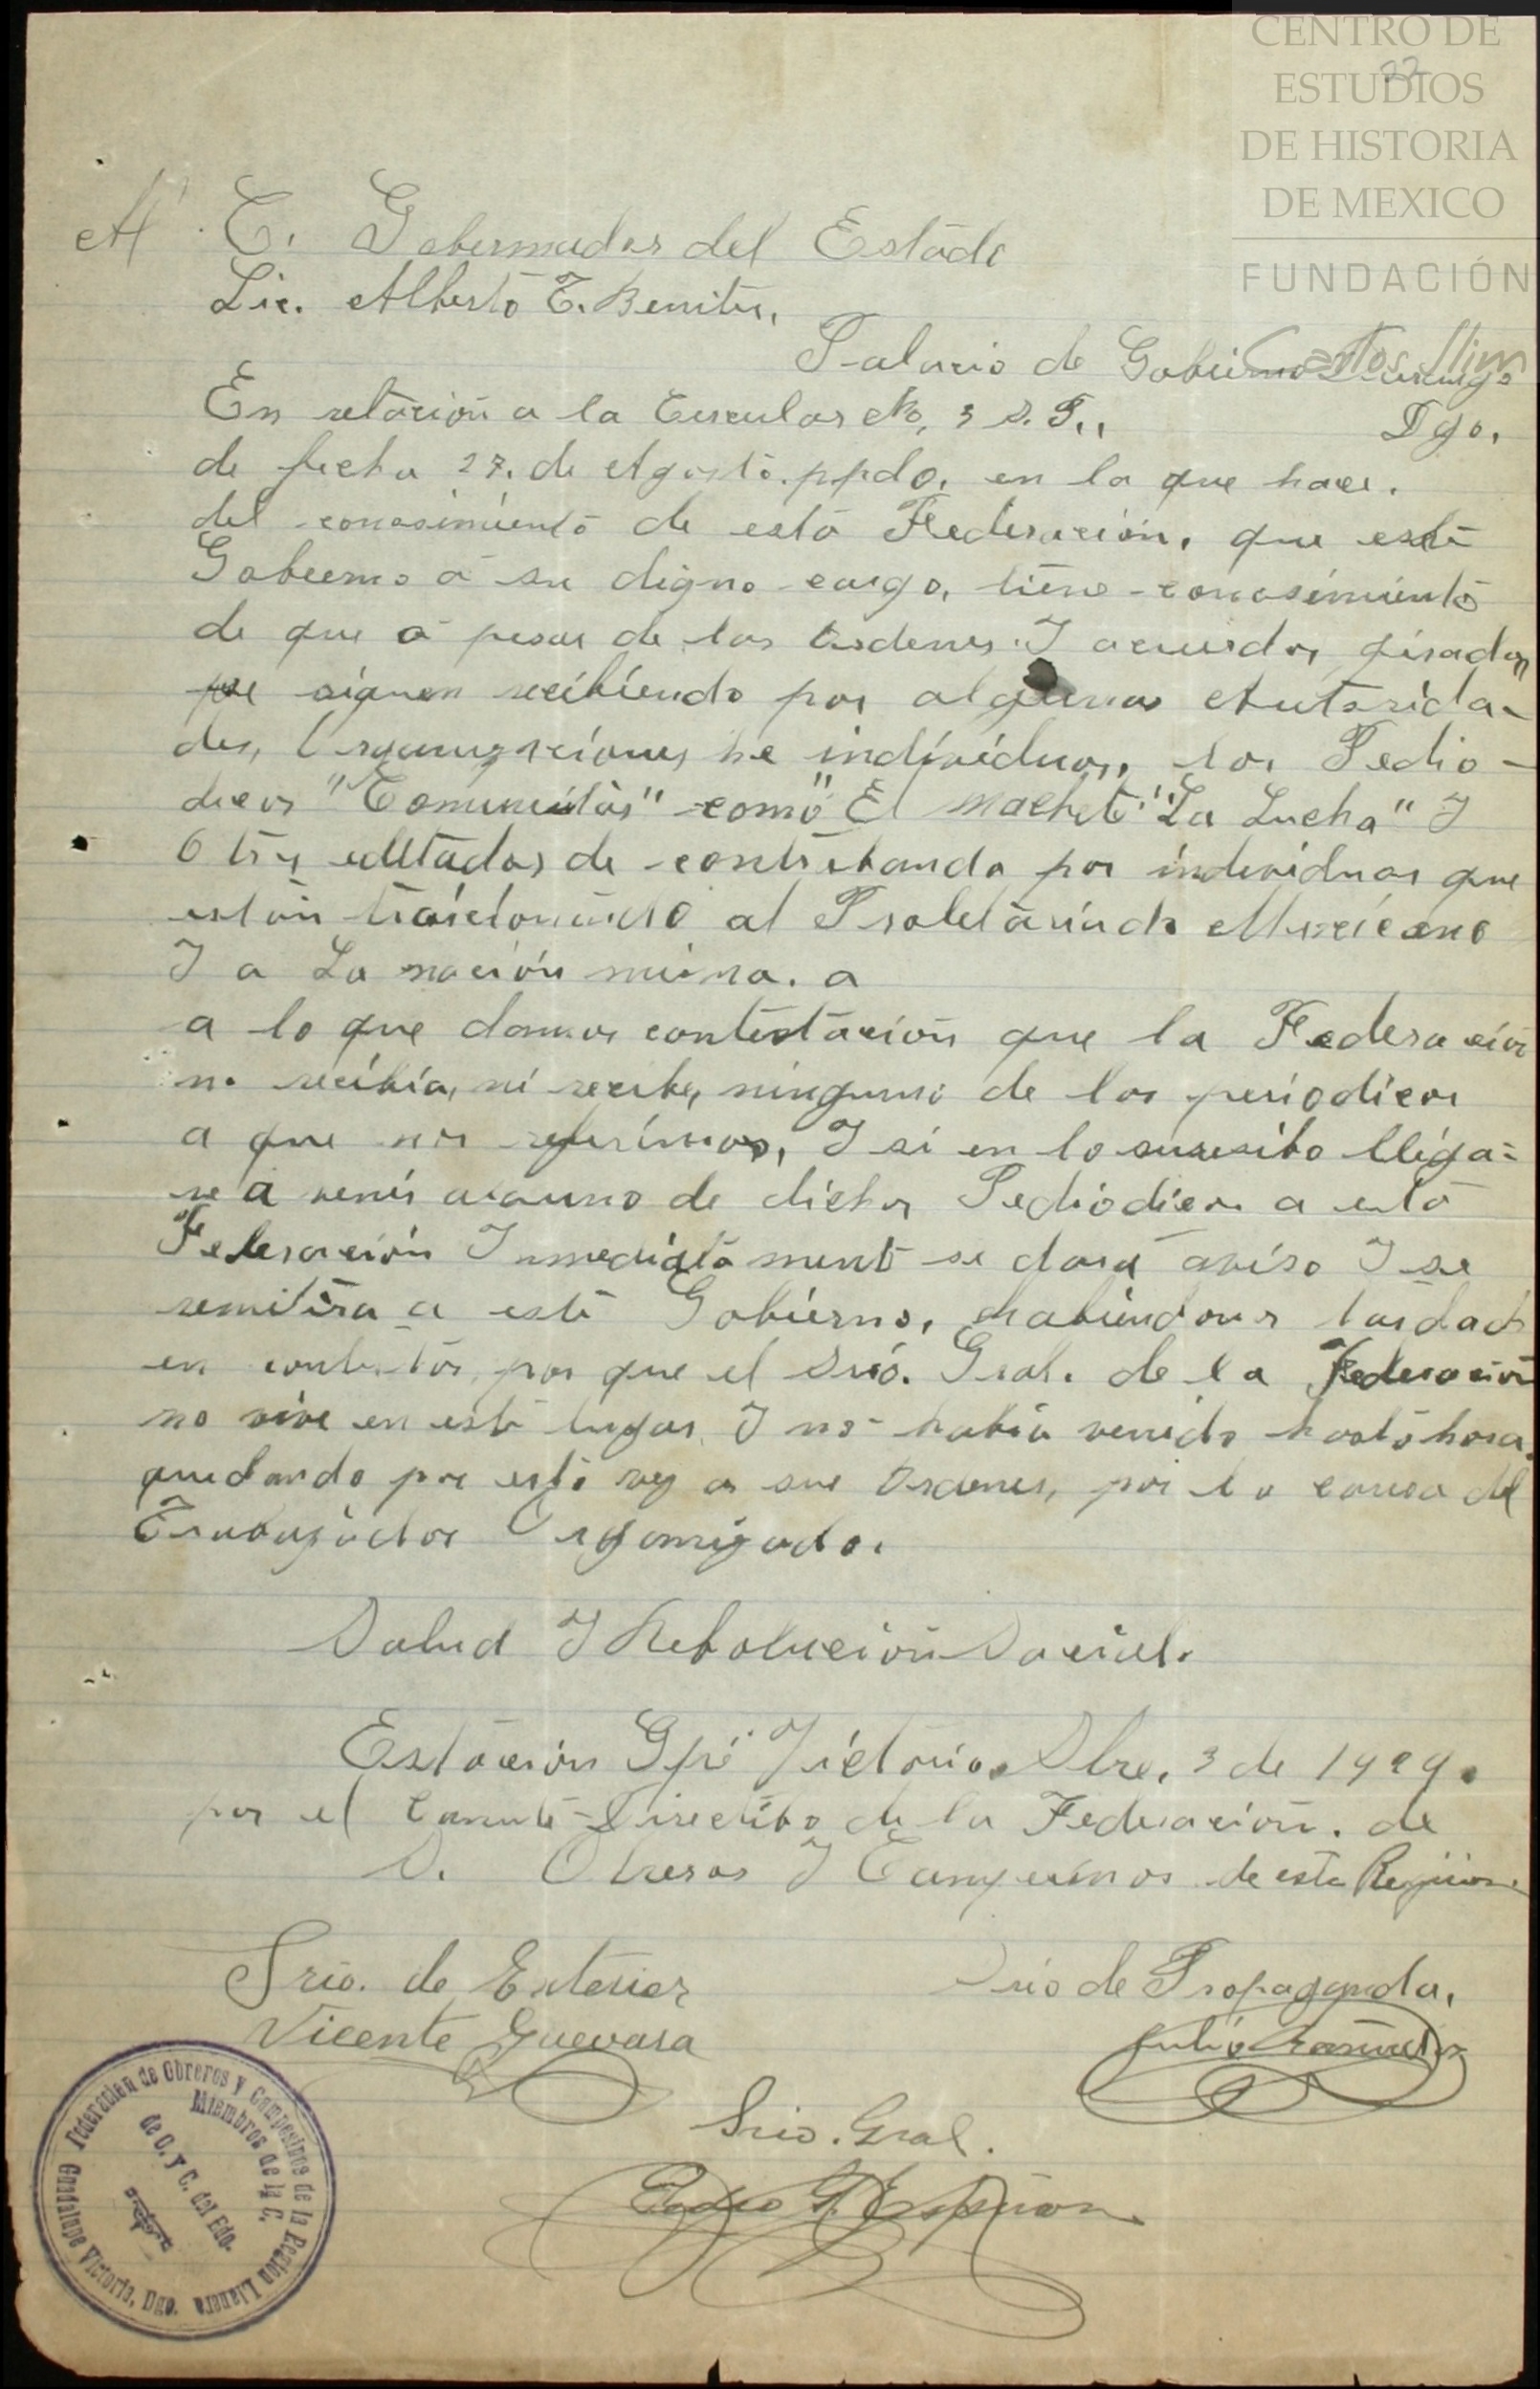 CENTRO DE
ESTUDIOS
DE HISTORIA
DE MEXICO
FUNDACIÓN
Carlos Slim
22
Al C. Gobernador del Estado
Lic. Alberto T. Benites,
Palacio de Gobierno Durango
Dgo.
En relación a la Circular No, 3 S. P.,
de fecha 27. de Agosto. ppdo, en la que hace.
del conosimiento de esta Federación, que este
Gobierno a su digno cargo, tiene conosimiento
de que a pesar de las Ordenes I acuerdos girados
se siguen recibiendo por algunas Autorida-
des, Organizaciones he individuos, los Pedio-
dicos "Comunistas" como "El Machete" "La Lucha" I
Otros editados de contrabando por individuos que
están traicionando al Proletariado Mexicano
I a La nación misma. a
a lo que damos contestación que la Federación
no recibia, ni recibe, ninguno de los periodicos
a que nos referimos, I si en lo susesibo lléga-
se a venir alguno de dichos Pediodicos a esta
Federación Inmediatamente se dara aviso I se
remitira a este Gobierno, habiendonos tardado
en contestar, por que el Srio. Gral. de la Federación
no vive en este lugar I no habia venido hastahora.
quedando por esta vez a sus Ordenes, por la causa del
Trabajador Organizado.
Salud I Rebolución Social.
Estación Gpe Victoria, Sbre, 3 de 1929.
por el Comite Directibo de la Federación. de
S. Obreros I Campesinos de esta Región.
Srio. de Exterior
Vicente Guevara
Srio de Propaganda,
Julio
Srio. Gral.
Pedro
Federacion de Obreros y Campesinos de la Region Llanera
Miembros de la C.
de O. y C. del Edo.
Guadalupe Victoria, Dgo.